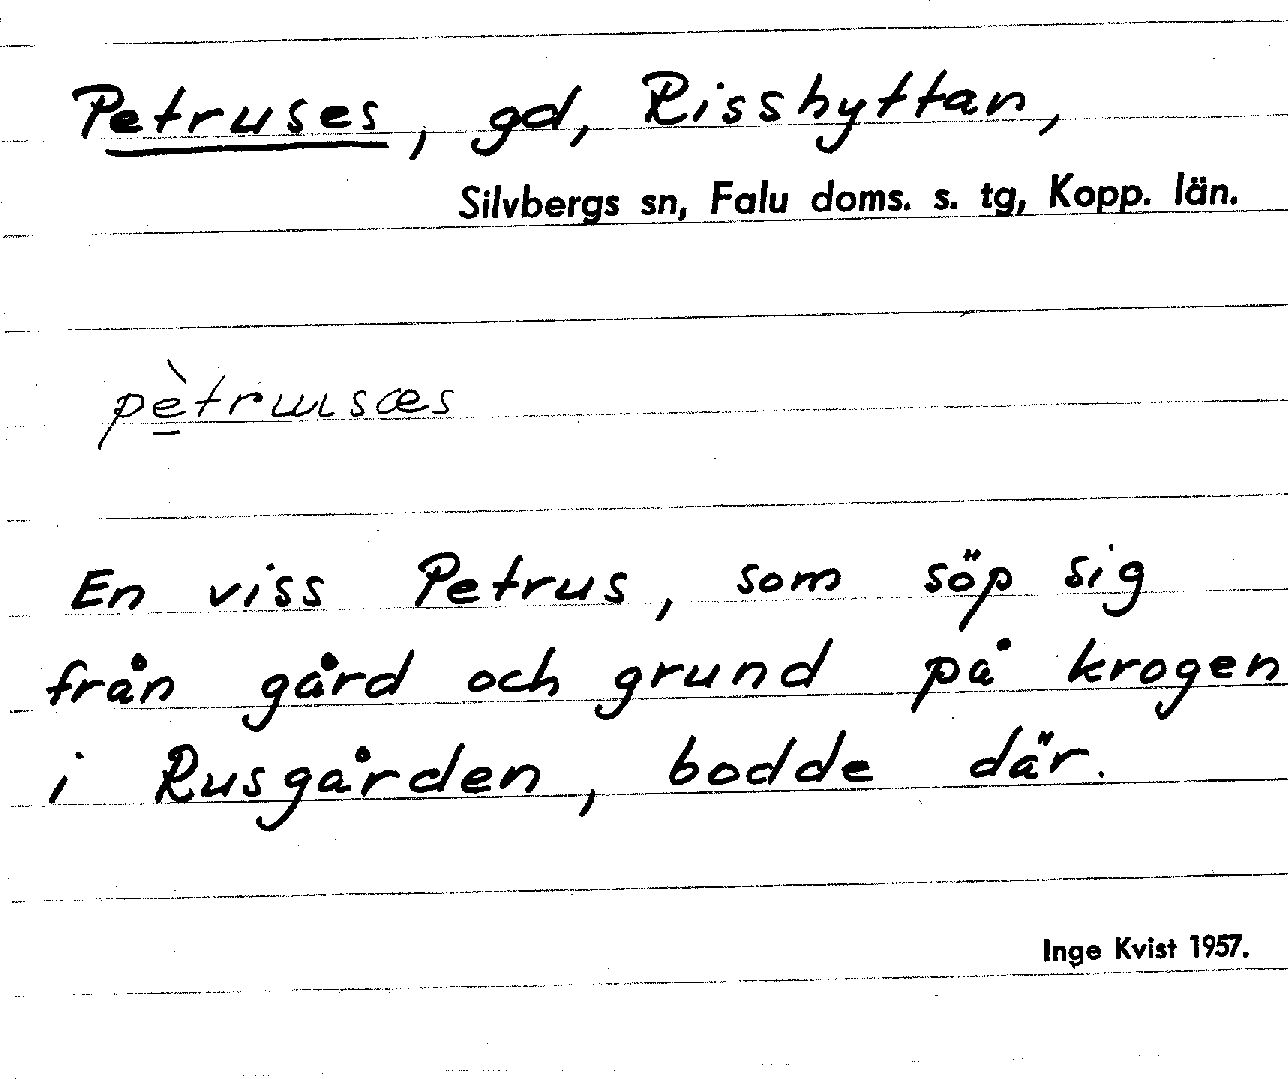 Petruses, gd, Risshyttan,
Silvbergs sn, Falu doms. s. tg, Kopp. län.
pètrɯsæs
En viss Petrus, som söp sig
från gård och grund på krogen
i Rusgården, bodde där.
Inge Kvist 1957.